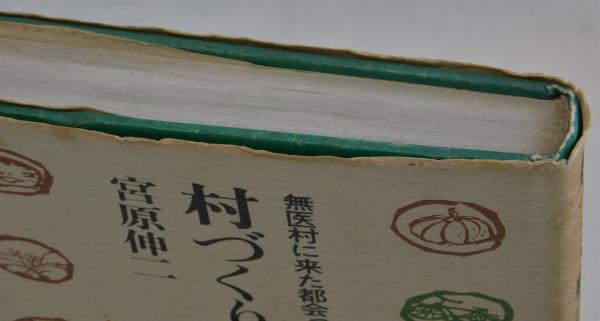 無医村に来た都会
村づく
宮原伸二